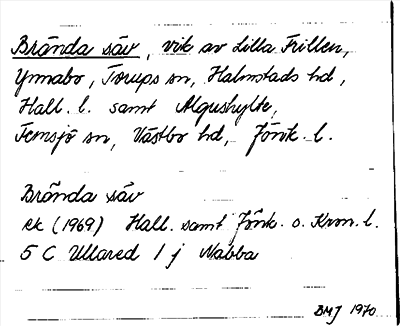 Brända säv, vik av Lilla Frillen,
Ynnabo, Torups sn, Halmstads hd,
Hall. l. samt Algushylte,
Femsjö sn, Västbo hd, Jönk. l.
Brända säv
ek (1969) Hall. samt Jönk. o. Kron. l.
5 C Ullared 1 j Nabba
BMJ 1970